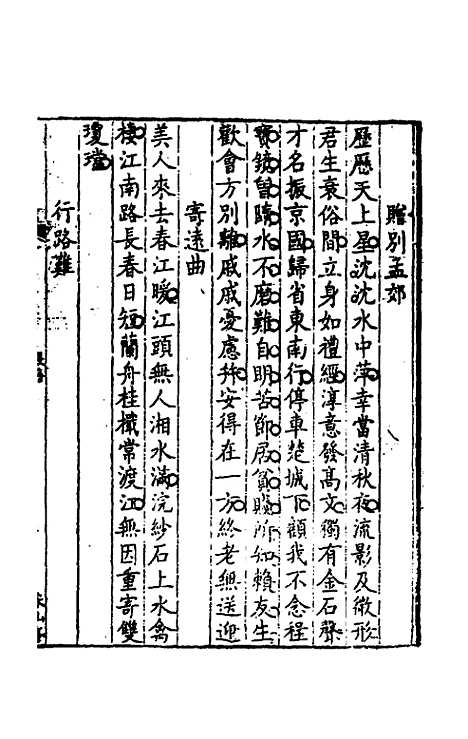 贈別孟郊
歷歷天上星沈沈水中萍幸當清秋夜流影及微形
君生衰俗間立身如禮經淳意發高文獨有金石聲
才名振京國歸省東南行停車楚城下顧我不念程
寶鏡曾墮水不磨難自明苦節居貧賤所知賴友生
歡會方別離戚戚憂慮并安得在一方終老無送迎
寄遠曲
美人來去春江暖江頭無人湘水滿浣紗石上水禽
棲江南路長春日短蘭舟桂檝常渡江無因重寄雙
瓊璫
行路難